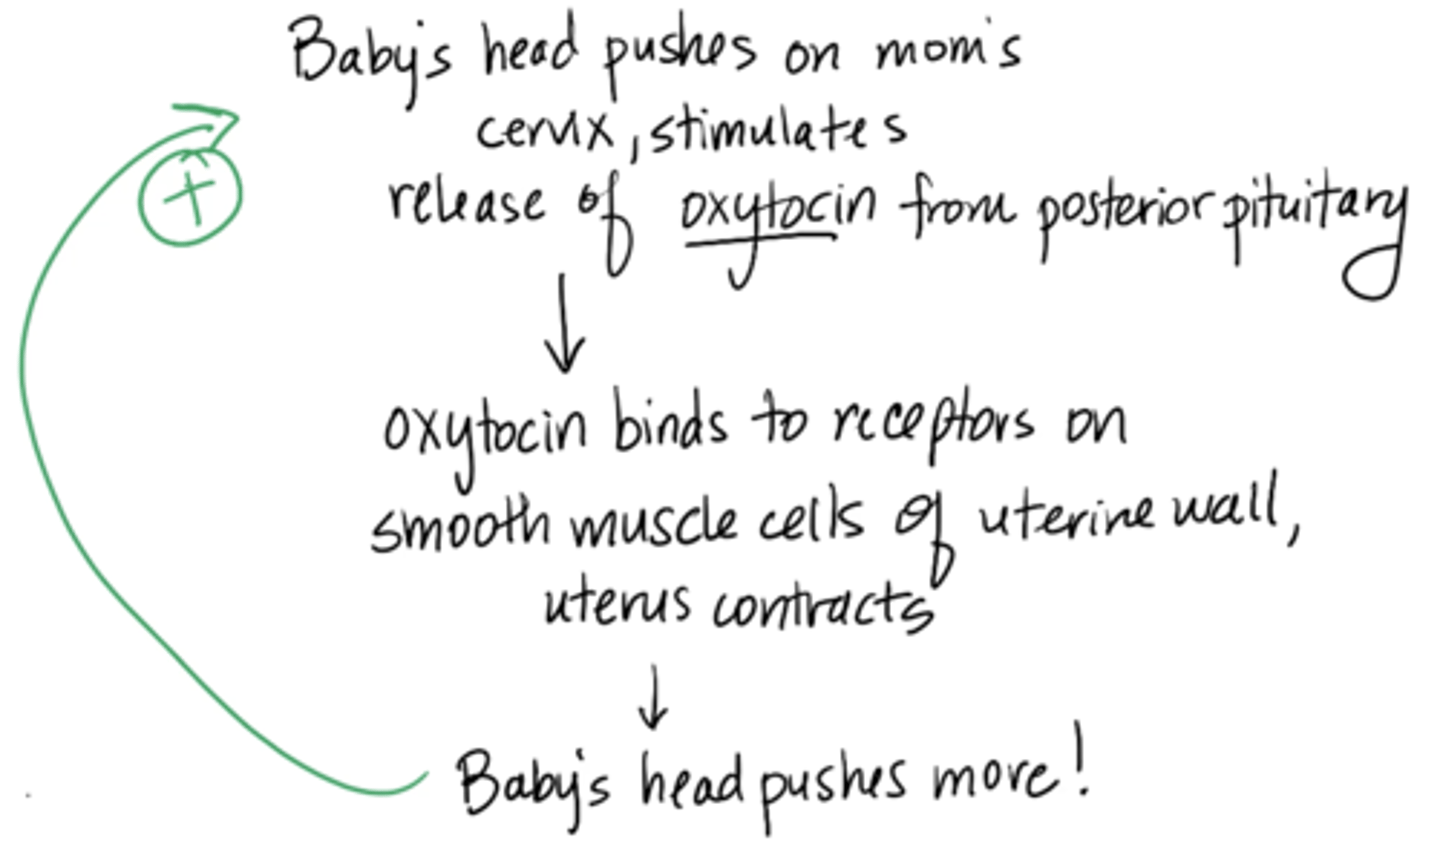 Baby's head pushes on mom's
cervix, stimulates
release of oxytocin from posterior pituitary
oxytocin binds to receptors on
smooth muscle cells of uterine wall,
uterus contracts
+
Baby's head pushes more!